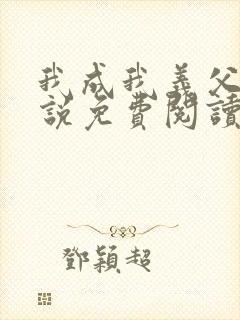 我成我義父
說免費閱讀
鄧穎超